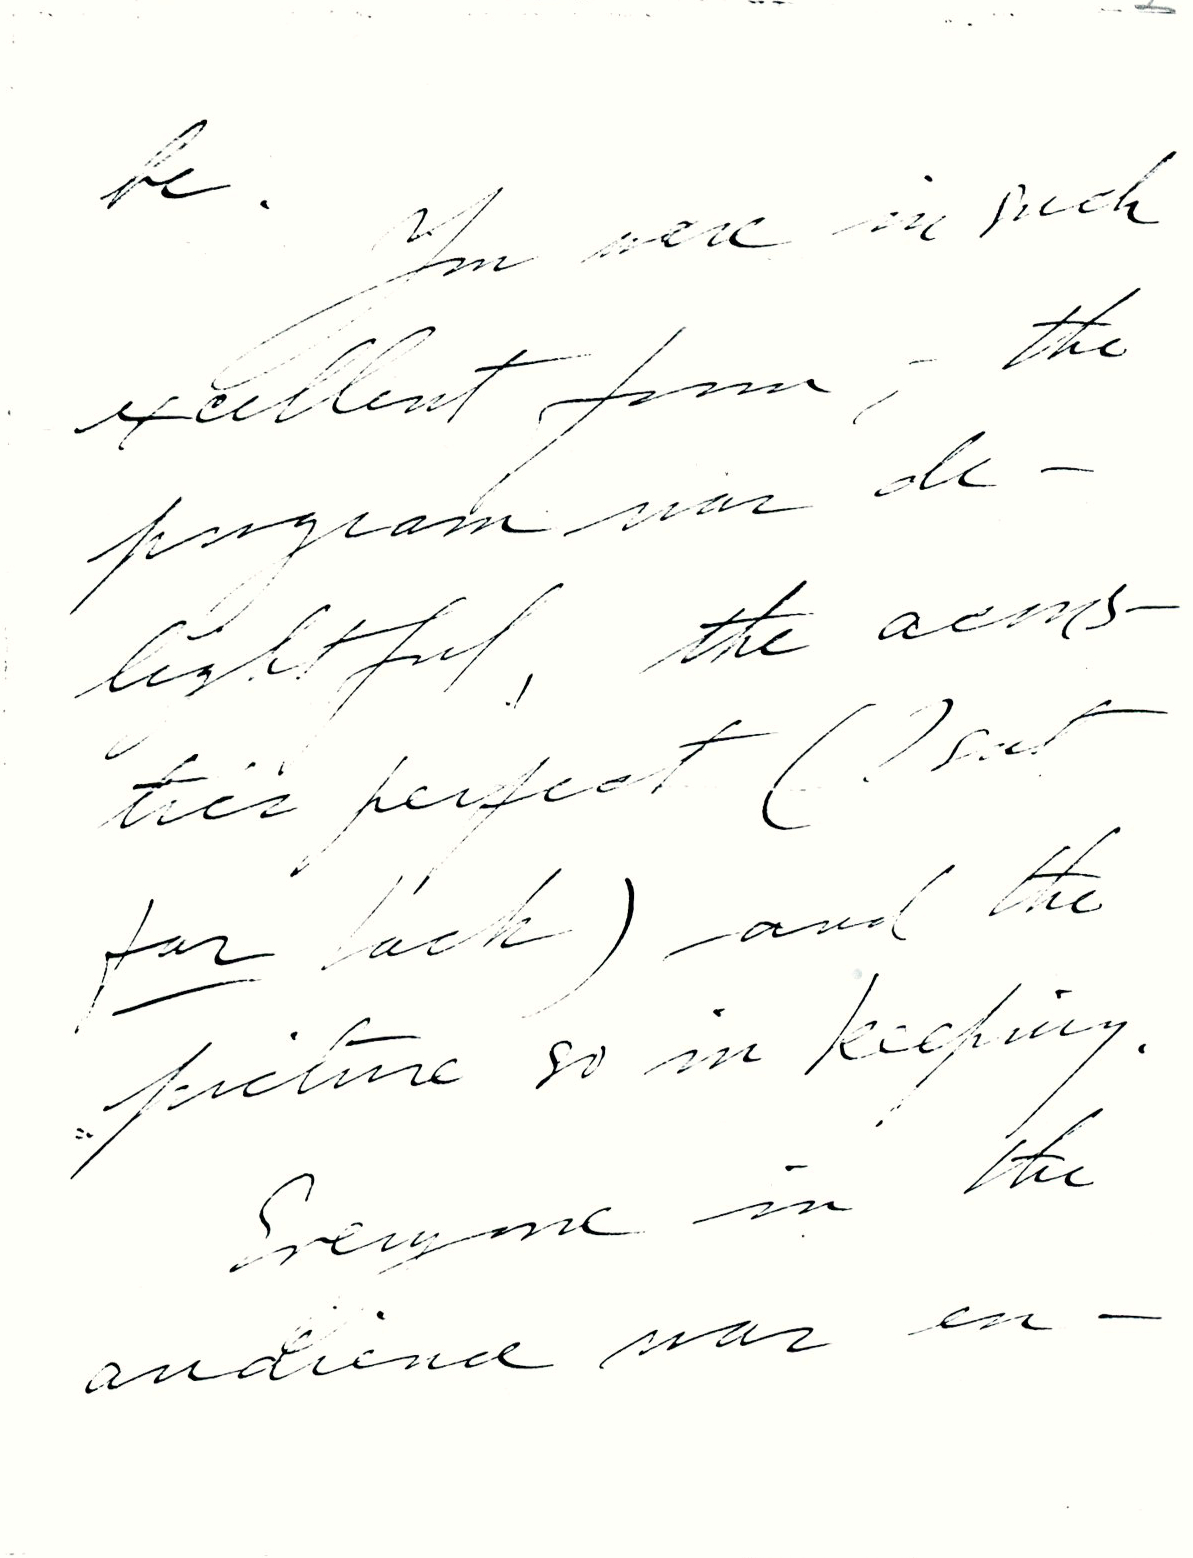 be.
You were in such
excellent form; the
program was de-
lightful, the acous-
tics perfect (I sat
far back) and the
picture so in keeping.
Everyone in the
audience was en-